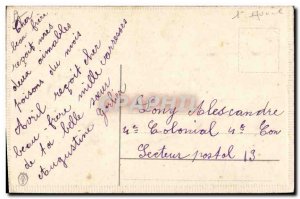 1er Avril
Cher
beau frère
reçoit ures
deux aimables
poisons du mois
Avril reçoit cher
beau frère mille caresses
de ta belle sœur
Augustine
Dony Alexandre
4e Colonial 4e Con
Secteur postal 13.